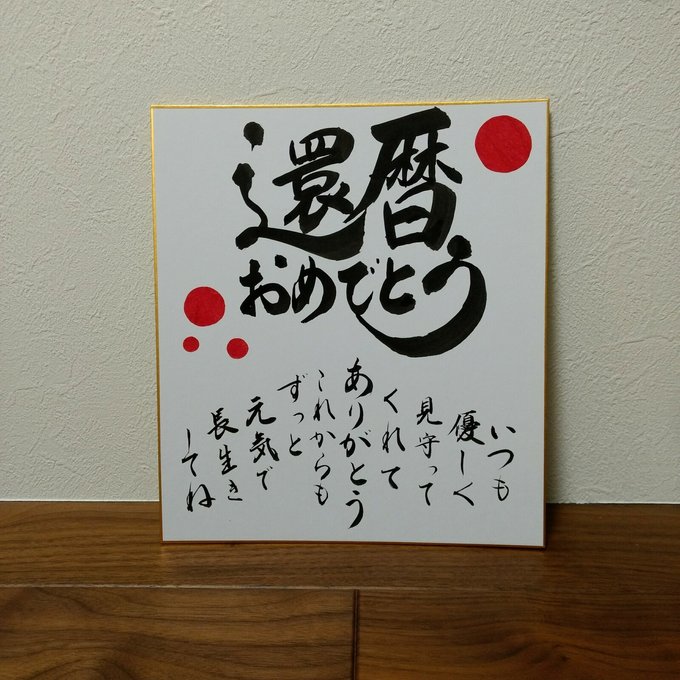 還暦
おめでとう
いつも
優しく
見守って
くれて
ありがとう
これからも
ずっと
元気で
長生き
してね